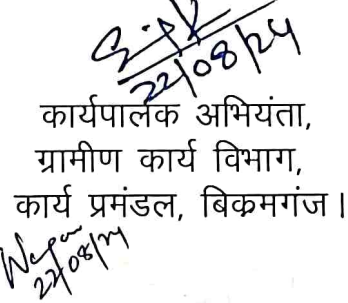 22/08/24
कार्यपालक अभियंता,
ग्रामीण कार्य विभाग,
कार्य प्रमंडल, बिक्रमगंज।
22/08/24